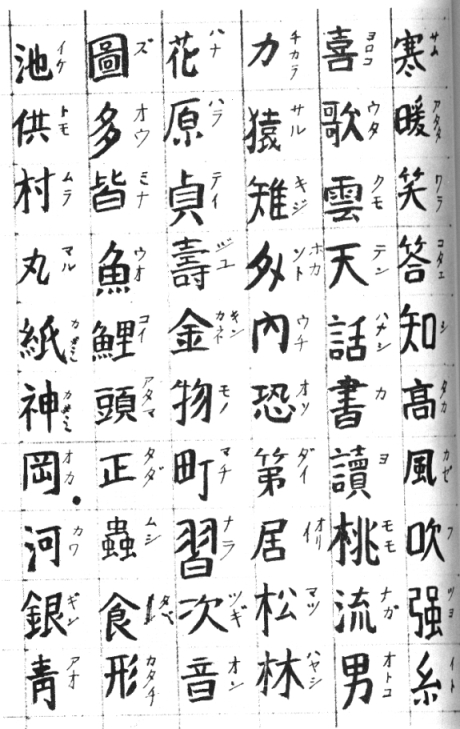 寒 暖 笑 答 知 高 風 吹 强 糸
サム アタタ ワラ コタエ シ タカ カゼ フ ツヨ イト
喜 歌 雲 天 話 書 讀 桃 流 男
ヨロコ ウタ クモ テン ハナシ カ ヨ モモ ナガ オトコ
力 猿 雉 外 內 恐 第 居 松 林
チカラ サル キジ ホカ ソト ウチ オソ ダイ オリ イ マツ ハヤシ
花 原 貞 壽 金 物 町 習 次 音
ハナ ハラ テイ キン カネ モノ マチ ナラ ツギ オン
圖 多 皆 魚 鯉 頭 正 蟲 食 形
ズ オウ ミナ ウオ コイ アタマ タダ ムシ カタチ
池 供 村 丸 紙 神 岡 河 銀 靑
イケ トモ ムラ マル オカ カワ ギン アオ